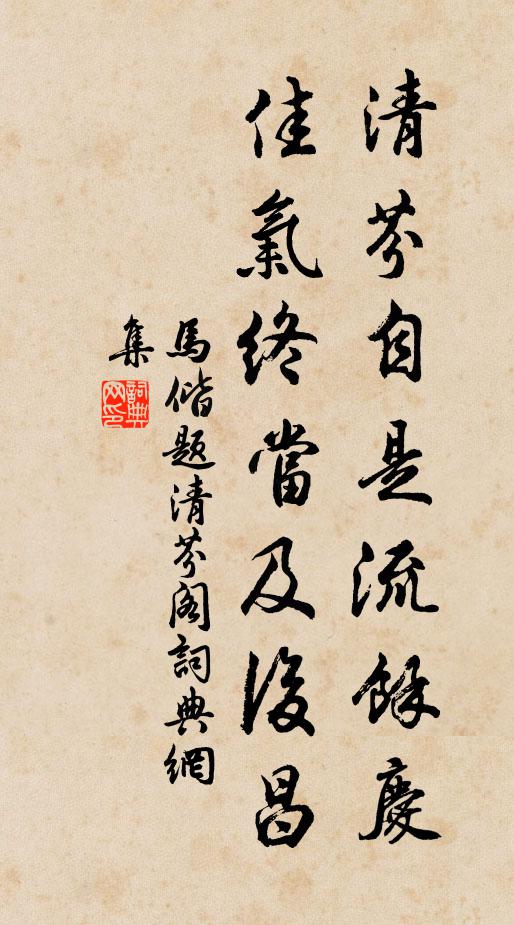 清芬自是流餘慶
佳氣終當及後昌
馬偕題清芬阁詞典網
集
詞典網印